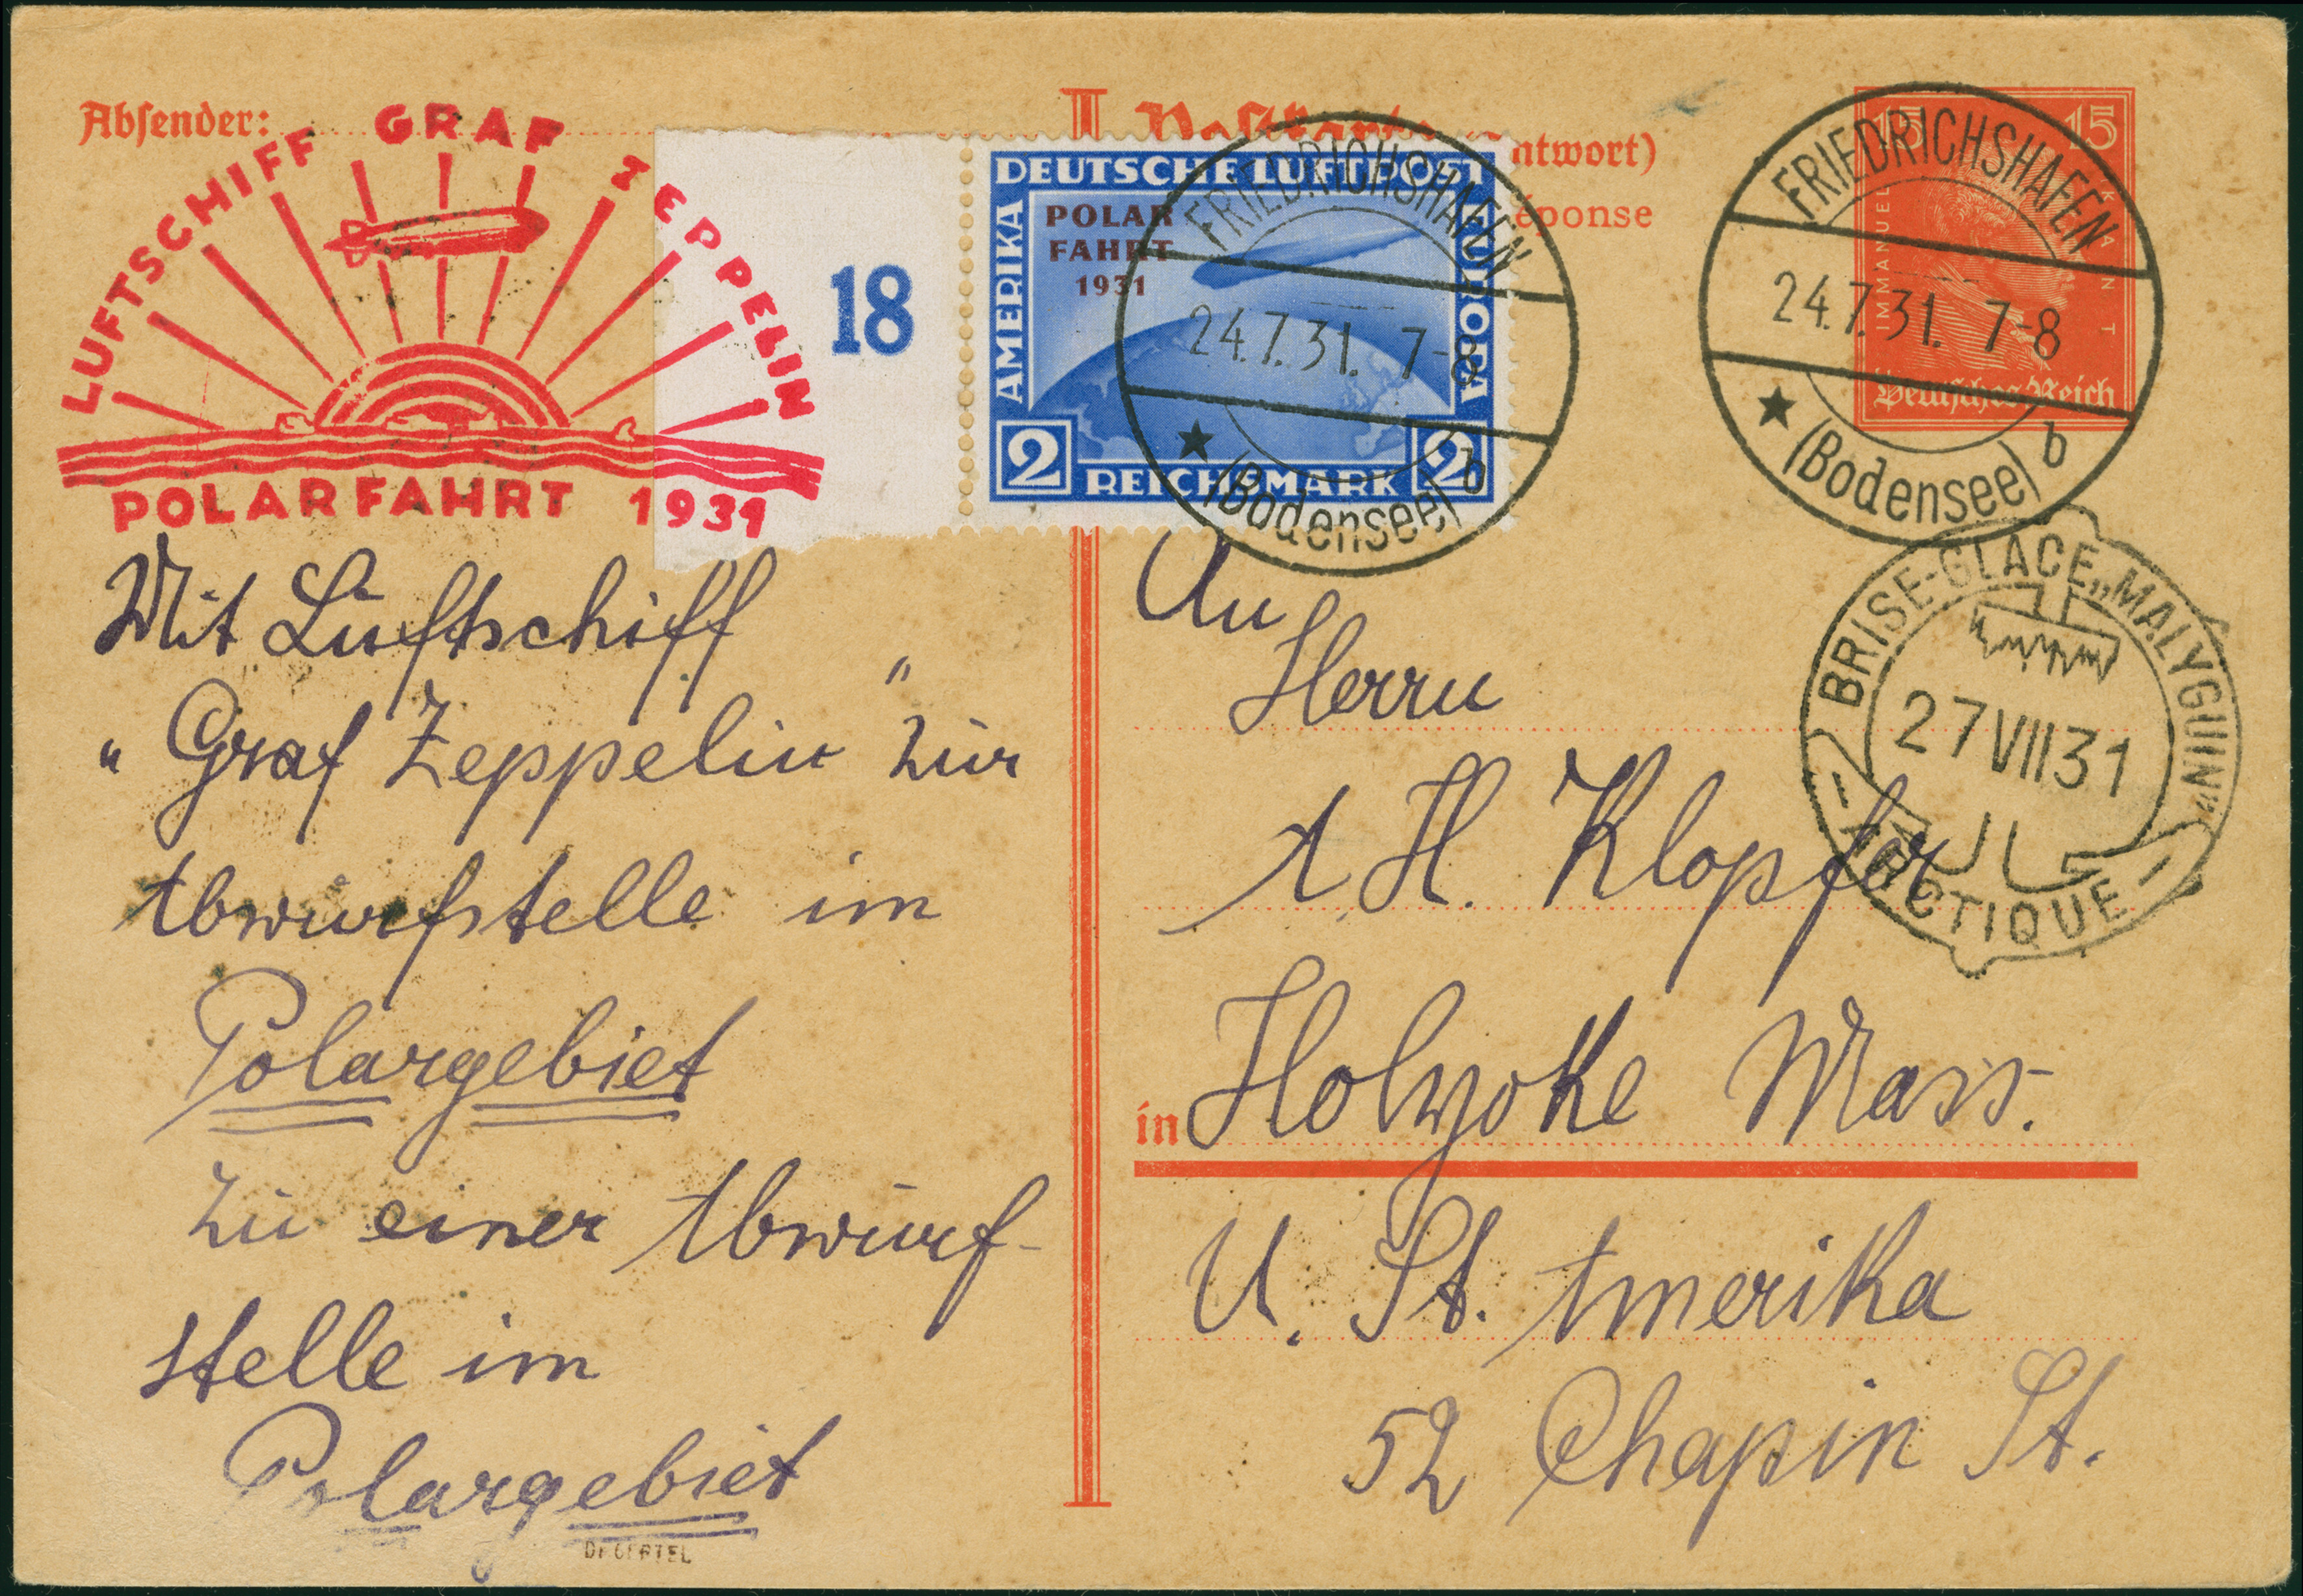 Absender:
LUFTSCHIFF GRAF ZEPPELIN
POLARFAHRT 1931
18
DEUTSCHE LUFTPOST
AMERIKA
EUROPA
POLAR
FAHRT
1931
2 REICHSMARK 2
FRIEDRICHSHAFEN
24.7.31. 7-8
(Bodensee) b
Postkarte
ntwort)
éponse
15 15
IMMANUEL KANT
Deutsches Reich
FRIEDRICHSHAFEN
24.7.31. 7-8
(Bodensee) b
BRISE-GLACE „MALYGUIN"
27 VII 31
- ARCTIQUE -
Mit Luftschiff
"Graf Zeppelin" zur
Abwurfstelle im
Polargebiet
zu einer Abwurf-
stelle im
Polargebiet
An
Herrn
A. H. Klopfer
in Holyoke Mass.
U. St. Amerika
52 Chapin St.